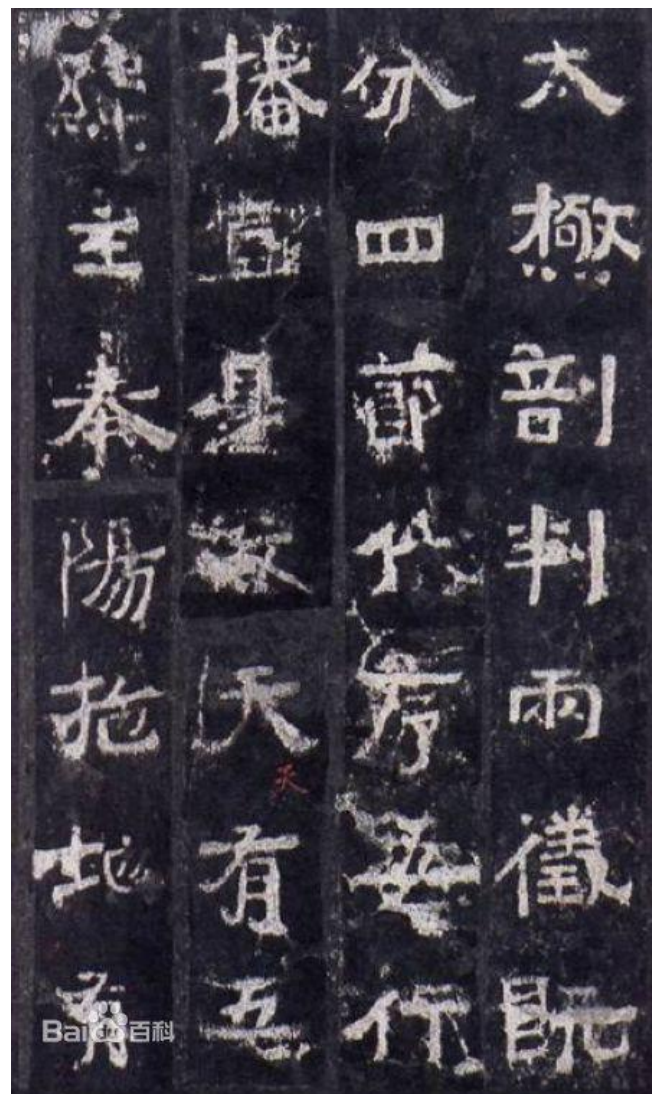 太極剖判兩儀既
分四節代序五行
播宣是故天有五
緯主奉陽施地有
天
Bai百科